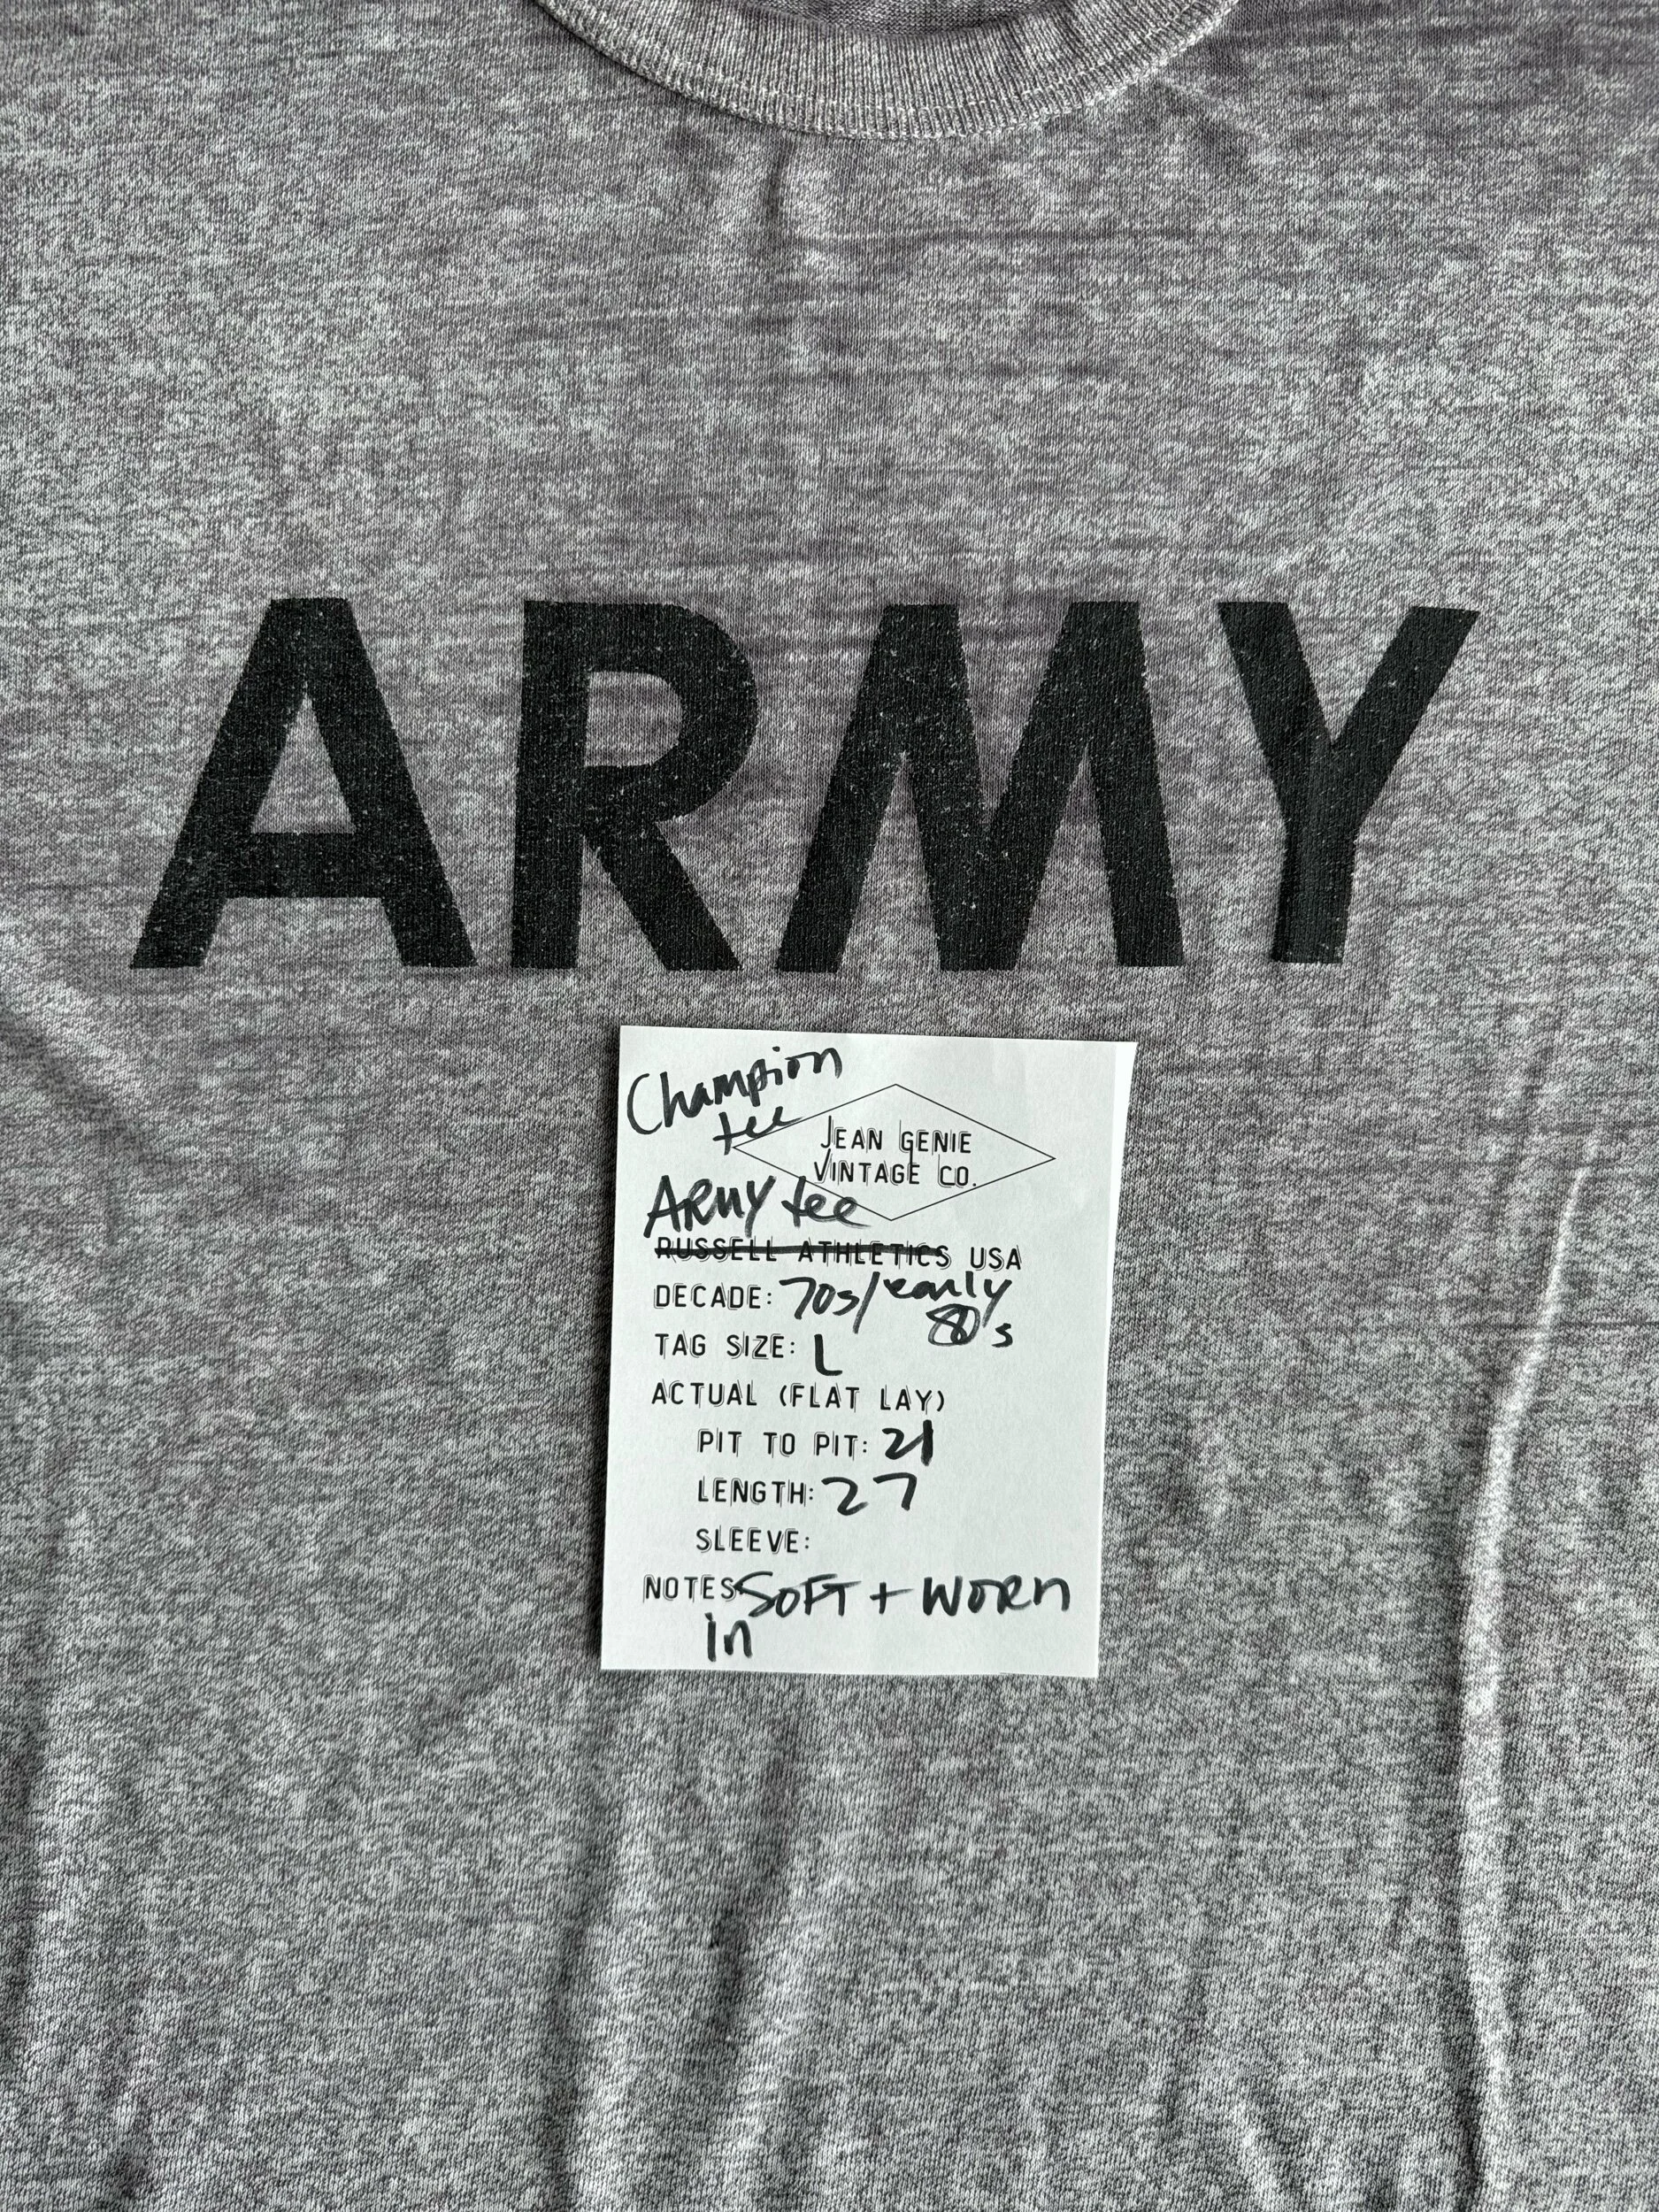 ARMY
Champion
tee
JEAN GENIE
VINTAGE CO.
ARMY tee
RUSSELL ATHLETICS USA
DECADE: 70s/early
80's
TAG SIZE: L
ACTUAL (FLAT LAY)
PIT TO PIT: 21
LENGTH: 27
SLEEVE:
NOTES: SOFT + WORN
in